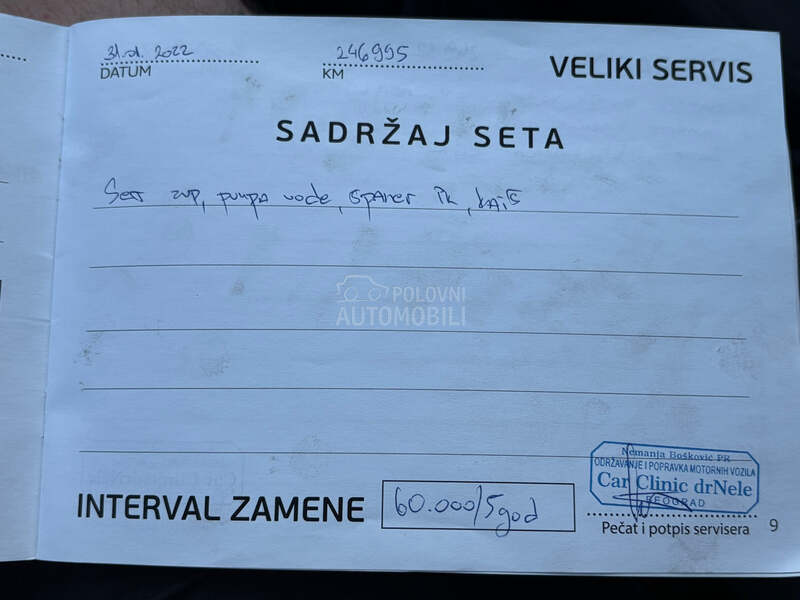 31.01.2022
246995
DATUM
KM
VELIKI SERVIS
SADRŽAJ SETA
Set zup, pumpa vode, španer PK, kaiš
POLOVNI
AUTOMOBILI
INTERVAL ZAMENE
60.000/5god
Nemanja Bošković PR
ODRŽAVANJE I POPRAVKA MOTORNIH VOZILA
Car Clinic drNele
BEOGRAD
Pečat i potpis servisera
9